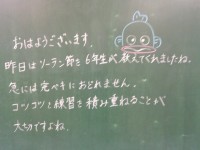 おはようございます。
昨日はソーラン節を6年生が教えてくれましたね。
急には完ペキにおどれません。
コツコツと練習を積み重ねることが
大切ですよね。